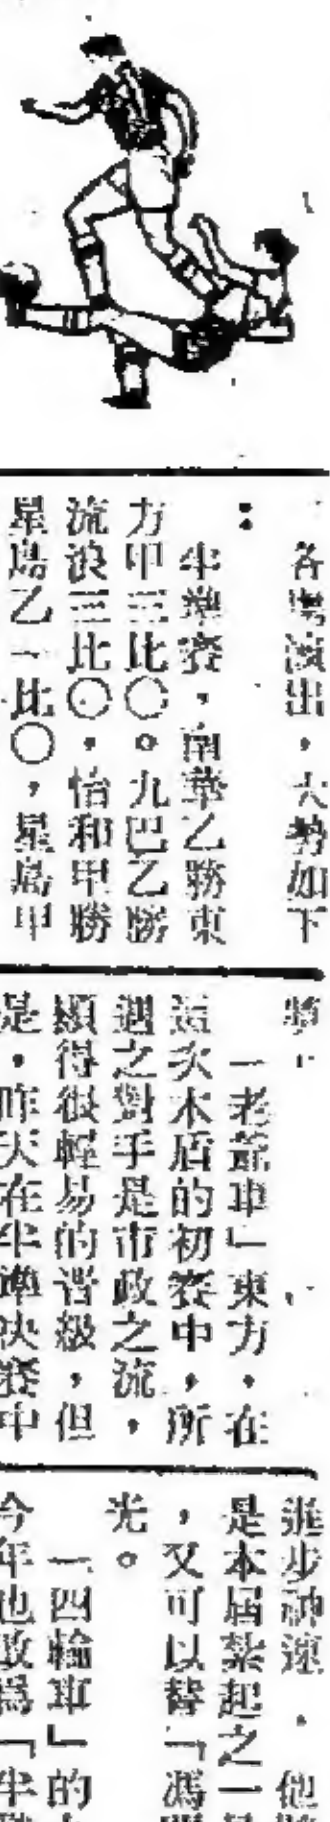 各場演出，大勢如下
：
半準賽，南華乙勝東
方甲三比〇。九巴乙勝
流浪三比〇，怡和甲勝
星島乙一比〇，星島甲
「老爺車」東方，在
這次木盾的初賽中，所
遇之對手是市政之流，
顯得很輕易的晋級，但
是，昨天在半準決賽中
進步神速，他
是本屆紮起之一
，又可以替「馮
光。
「四輪車」的
今年也改爲「半